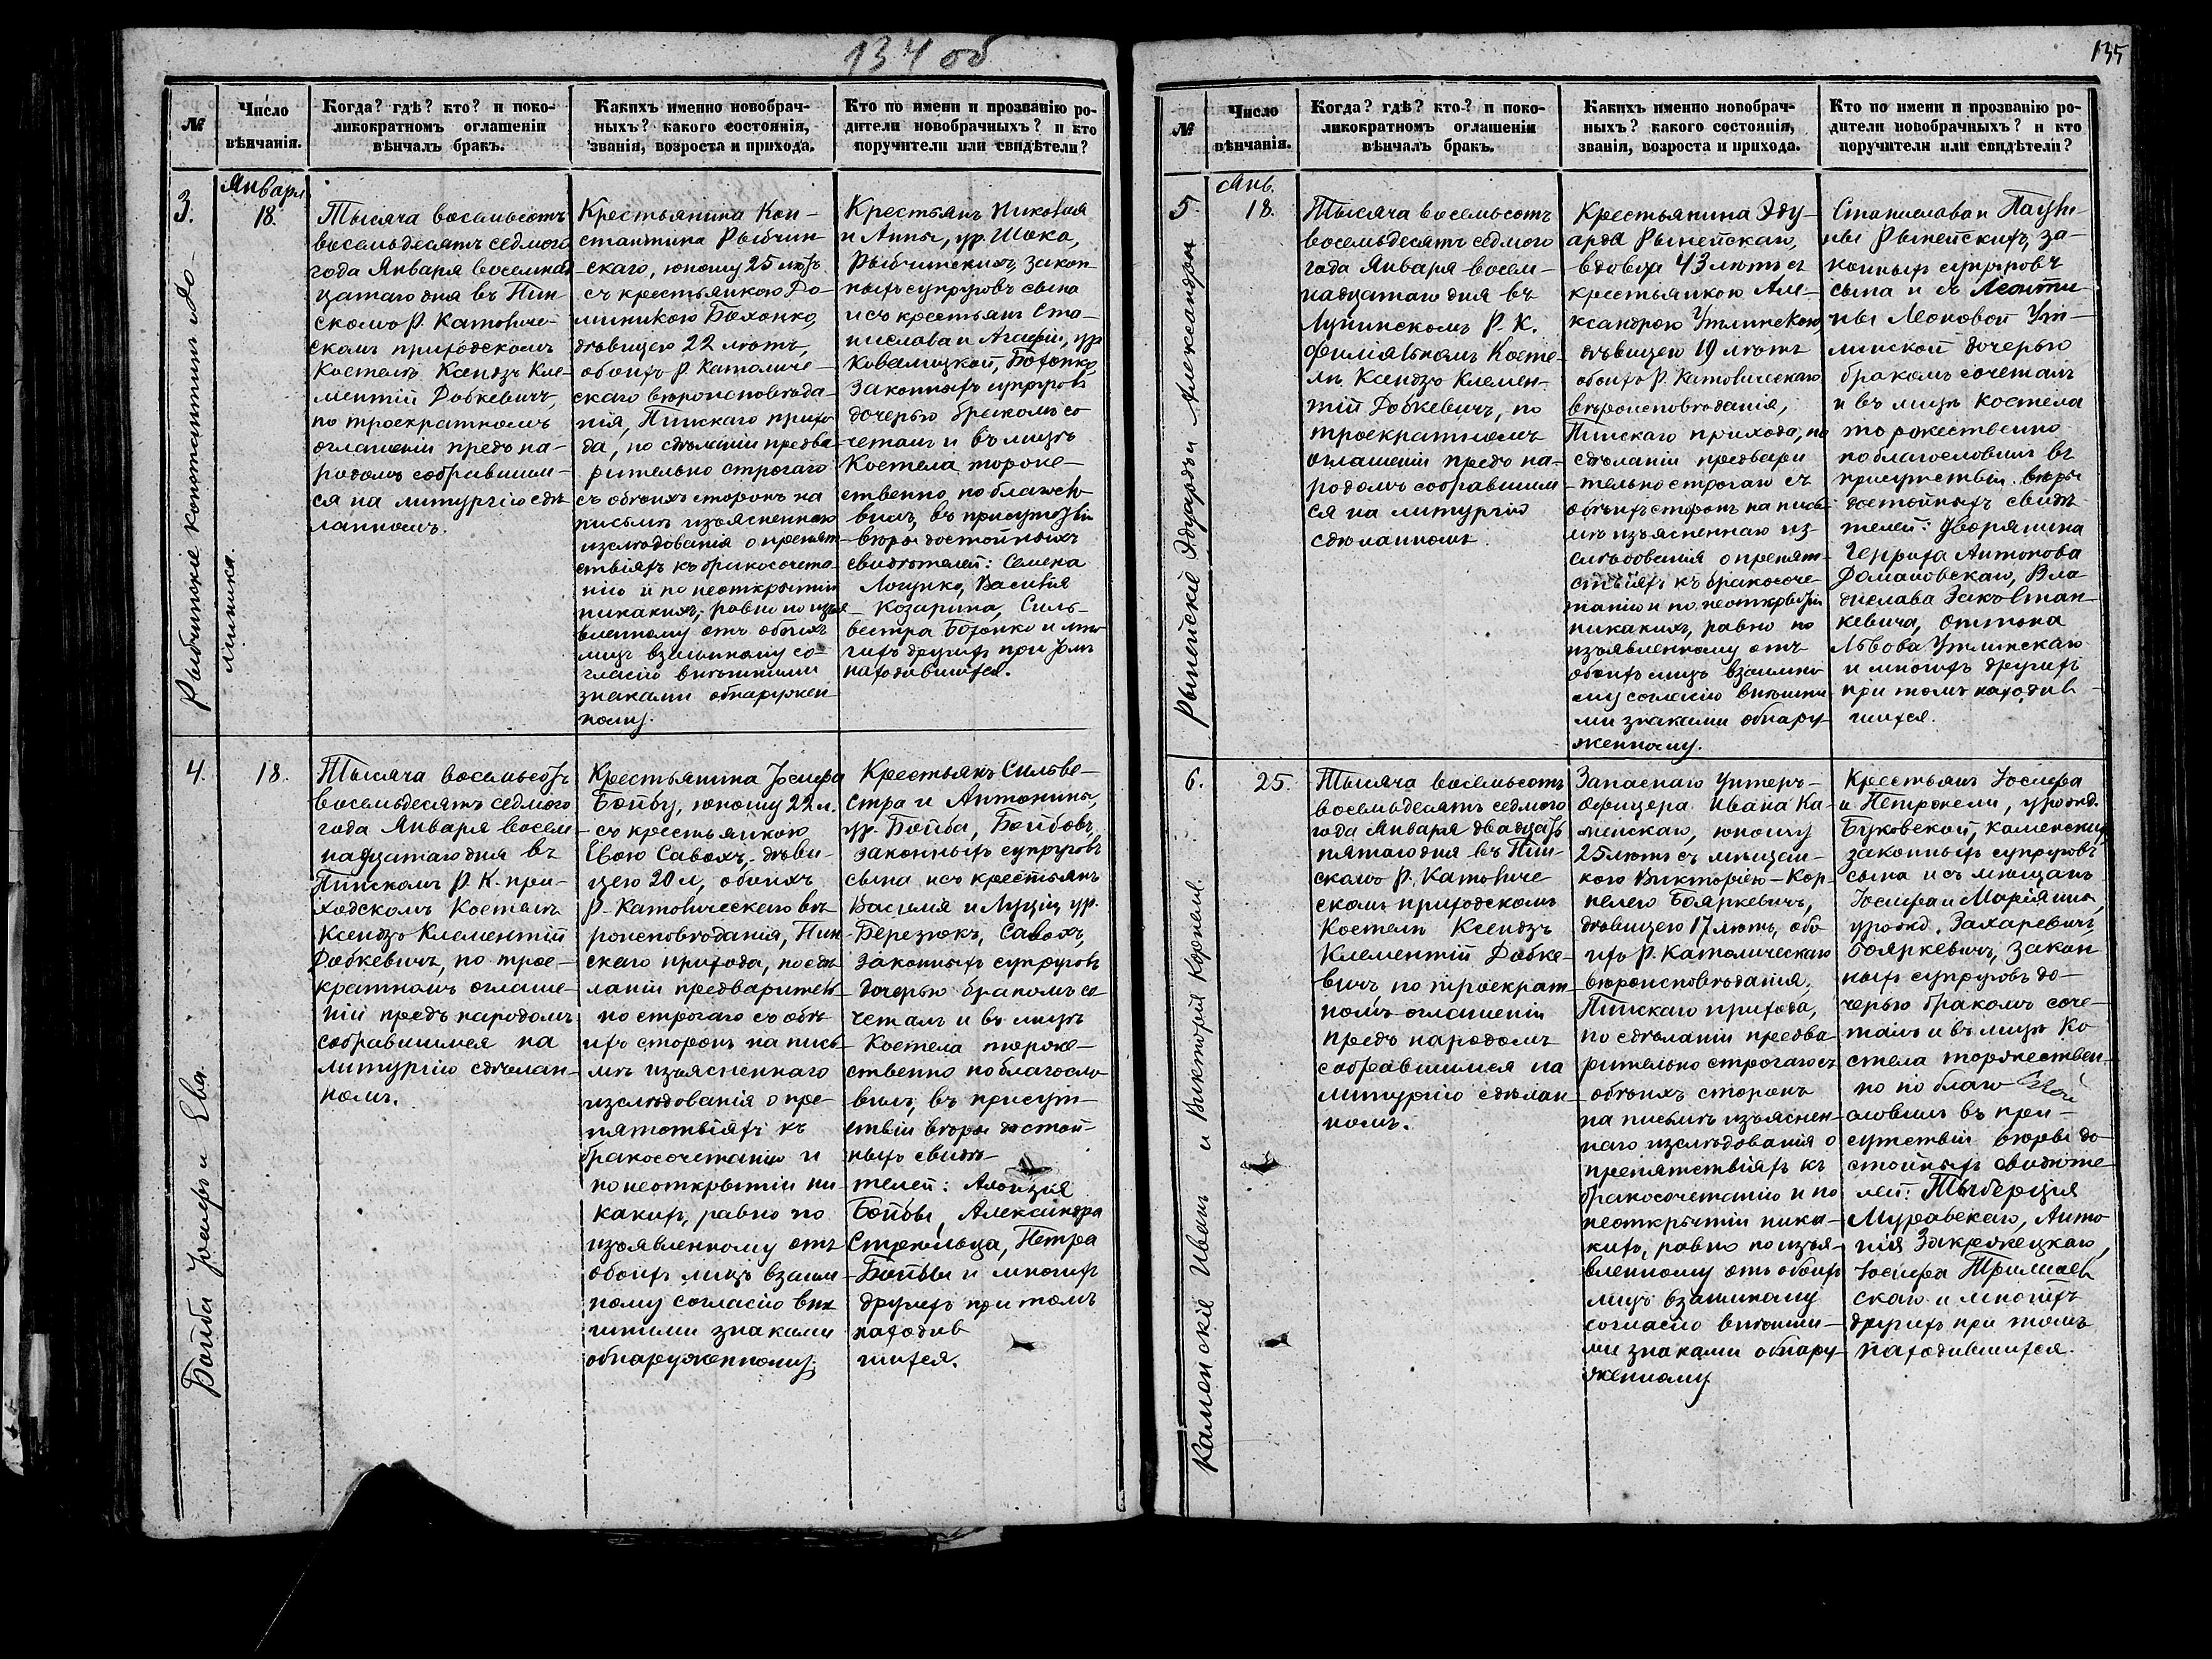 134 об
№
Число
вѣнчанія.
Когда? гдѣ? кто? и поко-
ликократномъ оглашеніи
вѣнчалъ бракъ.
Какихъ именно новобрач-
ныхъ? какого состоянія,
званія, возроста и прихода.
Кто по имени и прозванію ро-
дители новобрачныхъ? и кто
поручители или свидѣтели?
3.
Рыбчинскіе Константинъ и До-
миника.
Января
18.
Тысяча восемьсотъ
восемьдесятъ седмого
года Января восемнад
цатаго дня въ Пин
скомъ Р. Католиче-
скомъ приходскомъ
Костелѣ Ксендзъ Кле-
ментій Добкевичъ,
по троекратномъ
оглашеніи предъ на-
родомъ собравшим-
ся на литургію сдѣ
ланномъ.
Крестьянина Кон-
стантина Рыбчин
скаго, юношу 25 лѣтъ
съ крестьянкою До-
миникою Бохонко,
дѣвицею 22 лѣтъ,
обоихъ Р. Католиче-
скаго вѣроисповѣда-
нія, Пинскаго прихо
да, по сдѣланіи предва-
рительно строгаго
съ обѣихъ сторонъ на
письмѣ изъясненнаго
изслѣдованія о препят-
ствіяхъ къ бракосочета-
нію и по неоткрытіи
никакихъ, равно по изъя-
вленному отъ обоихъ
лицъ взаимному со-
гласію внѣшними
знаками обнаружен
ному.
Крестьянъ Николая
и Анны, ур. Шока,
Рыбчинскихъ, закон
ныхъ супруговъ сына
и съ крестьянъ Ста-
нислава и Агафіи, ур
Ковалицкой, Бохонко
законныхъ супруговъ
дочерью бракомъ со
четалъ и въ лицѣ
Костела торже-
ственно поблагосло-
вилъ, въ присутствіи
вѣры достойныхъ
свидѣтелей: Семена
Логунко, Василія
Козарина, Силь-
вестра Бохонко и мно
гихъ другихъ при томъ
находившихся.
4.
Бойба Іосифъ и Ева
18.
Тысяча восемьсотъ
восемьдесятъ седмого
года Января восем
надцатаго дня въ
Пинскомъ Р. К. при-
ходскомъ Костелѣ
Ксендзъ Клементій
Добкевичъ, по трое-
кратномъ оглаше-
ніи предъ народомъ
собравшимся на
литургію сдѣлан-
номъ.
Крестьянина Іосифа
Бойбу, юношу 22 л.
съ крестьянкою
Евою Савохъ, дѣви-
цею 20 л, обоихъ
Р. Католическаго вѣ
роисповѣданія, Пин
скаго прихода, по сдѣ
ланіи предваритель
но строгаго съ обѣ
ихъ сторонъ на пись
мѣ изъясненнаго
изслѣдованія о пре-
пятствіяхъ къ
бракосочетанію и
по неоткрытіи ни-
какихъ, равно по
изъявленному отъ
обоихъ лицъ взаим
ному согласію внѣ
шними знаками
обнаруженному.
Крестьянъ Сильве-
стра и Антонины,
ур. Бойба, Бойбовъ,
законныхъ супруговъ
сына и съ крестьянъ
Василія и Луціи, ур.
Березюкъ, Савохъ,
законныхъ супруговъ
дочерью бракомъ со
четалъ и въ лицѣ
Костела торже-
ственно поблагосло
вилъ, въ присут-
ствіи вѣры достой-
ныхъ свидѣ-
телей: Алоизія
Бойбы, Александра
Стрельца, Петра
Бойбы и многихъ
другихъ при томъ
находив
шихся.
135
№
Число
вѣнчанія.
Когда? гдѣ? кто? и поко-
ликократномъ оглашеніи
вѣнчалъ бракъ.
Какихъ именно новобрач-
ныхъ? какого состоянія,
званія, возроста и прихода.
Кто по имени и прозванію ро-
дители новобрачныхъ? и кто
поручители или свидѣтели?
5.
Рынейскіе Эдуардъ и Александра
Янв.
18.
Тысяча восемьсотъ
восемьдесятъ седмого
года Января восем-
надцатаго дня въ
Лунинскомъ Р. К.
Филіяльномъ Косте-
лѣ, Ксендзъ Клемен-
тій Добкевичъ, по
троекратномъ
оглашеніи предъ на-
родомъ собравшим
ся на литургію
сдѣланномъ.
Крестьянина Эду-
арда Рынейскаго,
вдовца 43 лѣтъ съ
крестьянкою Але-
ксандрою Утлинскою
дѣвицею 19 лѣтъ
обоихъ Р. Католическаго
вѣроисповѣданія,
Пинскаго прихода, по
сдѣланіи предвари
тельно строгаго съ
обѣихъ сторонъ на пись
мѣ изъясненнаго из-
слѣдованія о препят-
ствіяхъ къ бракосоче-
танію и по неоткрытіи
никакихъ, равно по
изъявленному отъ
обоихъ лицъ взаимно
му согласію внѣшни
ми знаками обнару-
женному.
Станислава и Паули-
ны Рынейскихъ, за-
конныхъ супруговъ
сына и съ Леонти
ны Леоновой Ут-
линской дочерью
бракомъ сочеталъ
и въ лицѣ Костела
торжественно
поблагословилъ въ
присутствіи вѣры
достойныхъ свидѣ
телей: дворянина
Генриха Антонова
Домановскаго, Вла
дислава
Оттона
Львова Утлинскаго
и многихъ другихъ
при томъ находив-
шихся.
6.
Каменскіе Иванъ и Викторія Корнел.
25.
Тысяча восемьсотъ
восемьдесятъ седмого
года Января двадцать
пятаго дня въ Пин-
скомъ Р. Католиче
скомъ приходскомъ
Костелѣ Ксендзъ
Клементій Добке-
вичъ по троекрат-
номъ оглашеніи
предъ народомъ
собравшимся на
литургію сдѣлан
номъ.
Запаснаго унтеръ-
офицера Ивана Ка-
менскаго, юношу
25 лѣтъ съ мѣщан-
кою Викторіею-Кор-
нелею Бояркевичъ,
дѣвицею 17 лѣтъ, обо
ихъ Р. Католическаго
вѣроисповѣданія,
Пинскаго прихода,
по сдѣланіи предва
рительно строгаго съ
обѣихъ сторонъ
на письмѣ изъяснен-
наго изслѣдованія о
препятствіяхъ къ
бракосочетанію и по
неоткрытіи ника-
кихъ, равно по изъя-
вленному отъ обоихъ
лицъ взаимному
согласію внѣшни-
ми знаками обнару-
женному
Крестьянъ Іосифа
и Петронели, урожд.
Буковской, Каменскихъ,
законныхъ супруговъ
сына и съ мѣщанъ
Іосифа и Маріянны,
урожд. Захаревичъ,
Бояркевичъ, закон
ныхъ супруговъ до-
черью бракомъ соче-
талъ и въ лицѣ Ко
стела торжествен
но по благо
словилъ въ при-
сутствіи вѣры до
стойныхъ свидѣте
лей: Тыберція
Муравскаго, Анто
нія Закржецкаго,
Іосифа
скаго и многихъ
другихъ при томъ
находившихся.